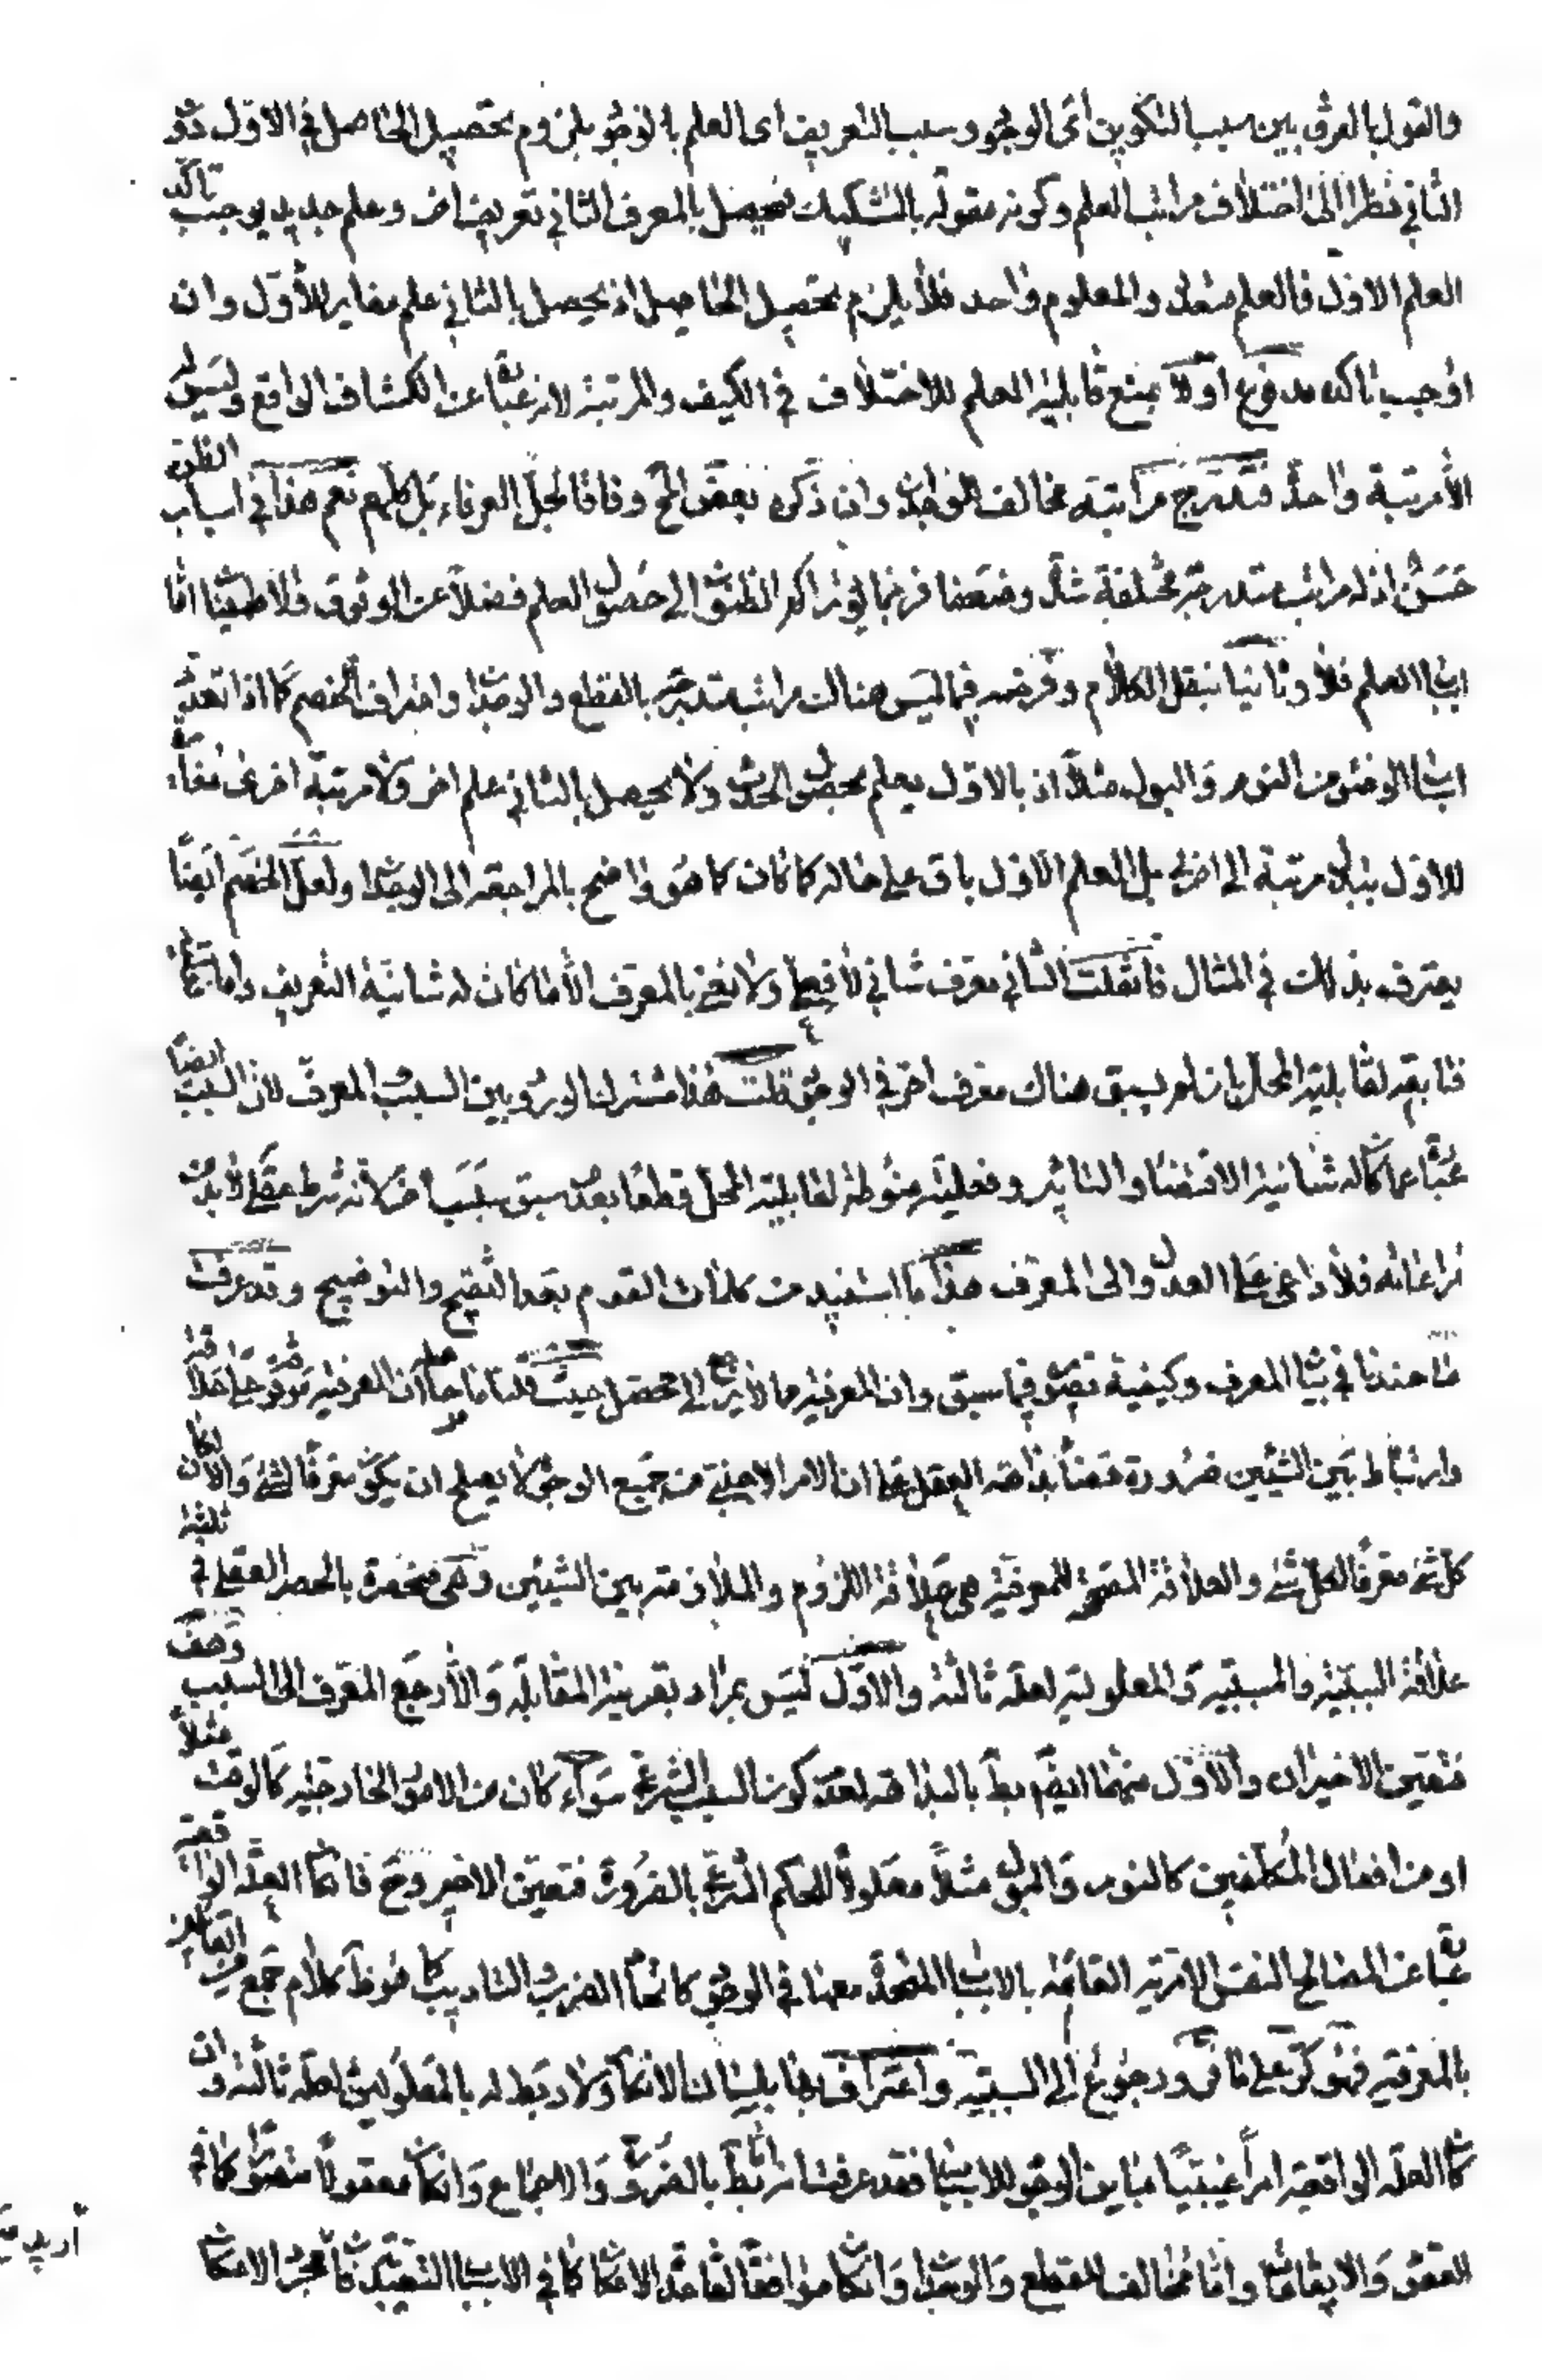 والقول بالفرق بين سبب التكوين أى الوجود وسبب التعريف اى العلم بالوجود بلزوم تحصيل الحاصل في الاول دون
الثاني نظرا الى اختلاف مراتب العلم وكونه مقولة بالتشكيك فيحصل بالمعرف الثاني تعريف اخر وعلم جديد يوجب تاكد
العلم الاول فالعلم متعدد والمعلوم واحد فلا يلزم تحصيل الحاصل اذ يحصل بالثاني علم مغاير للأول وان
اوجب تاكده مدفوع اولا بمنع قابلية العلم للاختلاف في الكيف والمرتبة لانه عبارة عن انكشاف الواقع وليس له
الا مرتبة واحدة فتدرج مراتبه مخالف للوجدان وان ذكره بعض المح وفاقا لجل العرفاء بل كلهم نعم هذا في اسباب الظن
حسن اذ له مراتب متدرجة مختلفة شدة وضعفا فربما يؤثر تراكم الظنون الى حصول العلم فضلا عن الوثوق والاطمينان اما
اسباب العلم فلا وثانيا ننقل الكلام ونفرضه فيما ليس هناك مراتب متدرجة بالقطع والوجدان واعتراف الخصم كما اذا تعدد
اسباب الوضوء من النوم والبول مثلا اذ بالاول يعلم بحصول الحدث ولا يحصل بالثاني علم اخر ولا مرتبة اخرى مغايرة
للاول يتبدل مرتبة الى اخرى بل العلم الاول باق على حاله كما كان كما هو واضح بالمراجعة الى الوجدان ولعل الخصم ايضا
يعترف بذلك في المثال فان قلت الثاني معرف شاني لا فعلي ولا نعني بالمعرف الا ما كان له شانية التعريف واما فعليته
فتابعة لقابلية المحل بان لم يسبق هناك معرف اخر في الوجود قلت هذا مشترك الورود بين السبب والمعرف لان السبب ايضا
عبارة عما كان له شانية الاقتضاء والتاثير وفعليته منوطة لقابلية المحل قطعا بعدم سبق سبب اخر لانه شرط عقلي لا بد من
مراعاته فلا داعي على العدول الى المعرف هذا ما استفيد من كلمات القوم بعد التنقيح والتوضيح وقد عرفت
ما عندنا في بيان المعرف وكيفية تصويره فيما سبق وان المعرفية مما لا يرجع الى محصل حيث قلنا ما حاصله ان المعرفية موقوفة على علاقة
وارتباط بين الشيئين ضرورة قضاء بداهة العقل على ان الامر الاجنبي من جميع الوجوه لا يصلح ان يكون معرفا لشئ والا لكان
كل شئ معرفا لكل شئ والعلاقة المصححة للمعرفية هي علاقة اللزوم والملازمة بين الشيئين وهي منحصرة بالحصر العقلي في ثلثة
علاقة السببية والمسببية والمعلولية لعلة ثالثة والاول ليس بمراد بقرينة المقابلة والا رجع المعرف الى السبب وهف
فتعين الاخيران والاول منهما ايضا بط بالبداهة لعدم كون السبب الشرعي سواء كان من الامور الخارجية كالوقت مثلا
او من افعال المكلفين كالنوم والبول مثلا معلولا للحكم الشرعي بالضرورة فتعين الاخير وح فان كان العلة الواقعية
عبارة عن المصالح النفس الامرية القائمة بالاسباب المتحدة معها في الوجود كاتحاد الضرب والتاديب كما هو ظ كلام جمع من القائلين
بالمعرفية فهو كر على ما فر ورجوع الى السببية واعتراف بها بلسان الانكار ولا ربط له بالمعلولين لعلة ثالثة وان
كان العلة الواقعية امرا غيبيا مباين الوجود للاسباب فقد عرفت انه بط بالضرورة والاجماع وان كان معقولا متصورا كما في
العقود والايقاعات واما مخالف للقطع والوجدان وان كان موافقا لقاعدة الامكان كما في الاسباب التعبدية فان مجرد الامكان